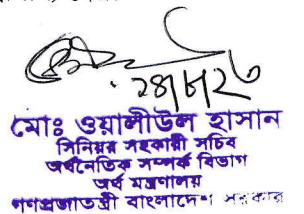 ২৪/৮/২৩
মোঃ ওয়ালীউল হাসান
সিনিয়র সহকারী সচিব
অর্থনৈতিক সম্পর্ক বিভাগ
অর্থ মন্ত্রণালয়
গণপ্রজাতন্ত্রী বাংলাদেশ সরকার